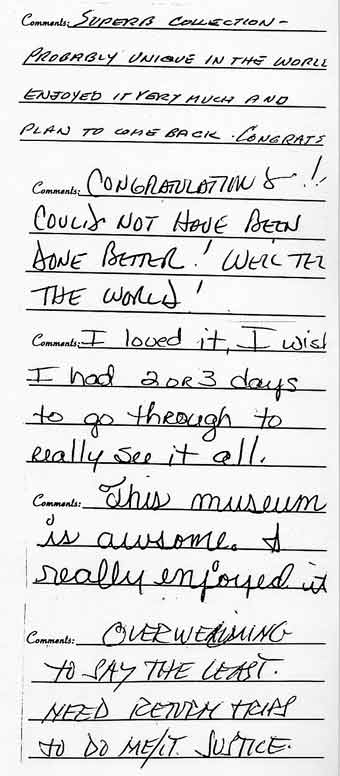 Comments: SUPERB COLLECTION -
PROBABLY UNIQUE IN THE WORLD
ENJOYED IT VERY MUCH AND
PLAN TO COME BACK. CONGRATS
Comments: CONGRATULATIONS !!
COULD NOT HAVE BEEN
DONE BETTER! WE'LL TEL
THE WORLD!
Comments: I loved it, I wish
I had 2 OR 3 days
to go through to
really see it all.
Comments: This museum
is awsome. I
really enjoyed it
Comments: OVERWELMING
TO SAY THE LEAST.
NEED RETURN TRIPS
TO DO ME/IT. JUSTICE.